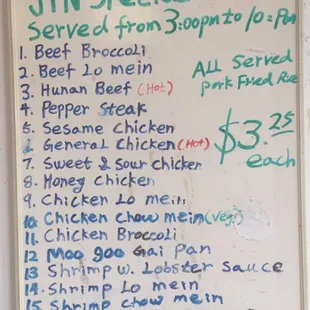 JIN Special
Served from 3:00pm to 10:pm
1. Beef Broccoli
2. Beef Lo mein
3. Hunan Beef (Hot)
4. Pepper Steak
5. Sesame chicken
6 General chicken (Hot)
7. Sweet & Sour chicken
8. Honey chicken
9. Chicken Lo mein
10. Chicken chow mein (veg.)
11. Chicken Broccoli
12 Moo goo Gai Pan
13 Shrimp w. Lobster sauce
14. Shrimp Lo mein
15. Shrimp chow mein
ALL Served
pork Fried Rice
$3.25
each